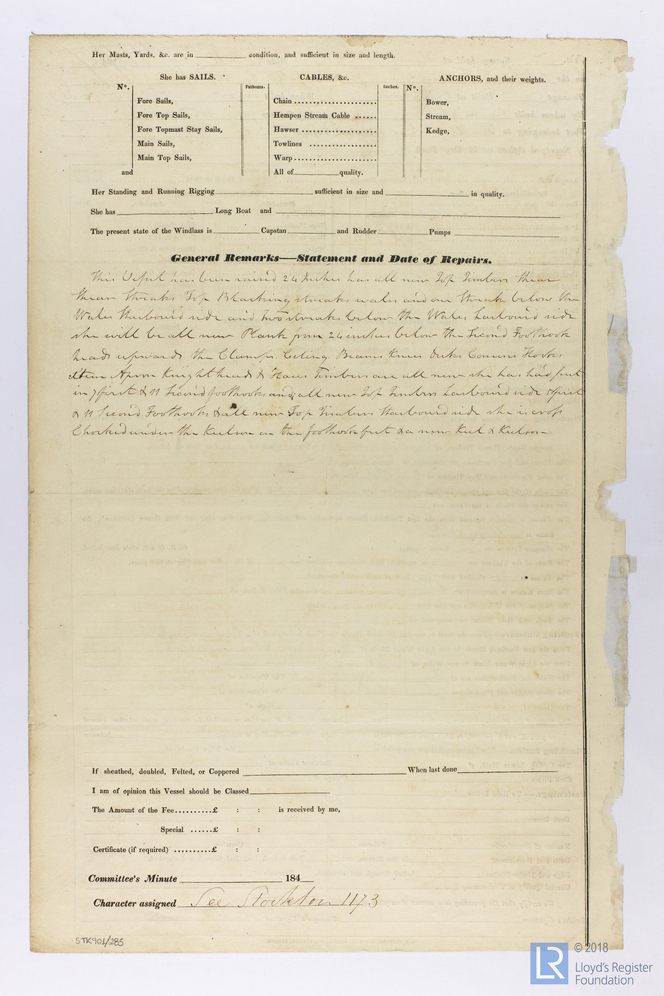 Her Masts, Yards, &c. are in condition, and sufficient in size and length.
She has SAILS. CABLES, &c. ANCHORS, and their weights.
No. Fathoms. Inches. No.
Fore Sails, Chain Bower,
Fore Top Sails, Hempen Stream Cable Stream,
Fore Topmast Stay Sails, Hawser Kedge,
Main Sails, Towlines
Main Top Sails, Warp
and All of quality.
Her Standing and Running Rigging sufficient in size and in quality.
She has Long Boat and
The present state of the Windlass is Capstan and Rudder Pumps
General Remarks—Statement and Date of Repairs.
This Vessel has been raised 24 Inches has all new Top Timbers
Top Blacking streaks wales and one streak below the
Wales Starbourd side and two streaks below the Wales Larbourd side
she will be all new Plank from 24 inches below the Second Foothook
heads upwards the Clamps Ceiling Beams Knees Decks Hooks
Stem Apron Knight heads & Timbers are all new she has had put
in 7 first & 11 Second foothooks and all new Top Timbers Larbourd side
& 11 Second Foothooks & all new Top Timbers Starbourd side she is cross
Chocked under the Keelson on the foothook feet & a new Keel & Keelson
If sheathed, doubled, Felted, or Coppered When last done
I am of opinion this Vessel should be Classed
The Amount of the Fee..........£ : : is received by me,
Special ......£ : :
Certificate (if required) ..........£ : :
Committee's Minute 184
Character assigned See Stockton 1173
STK901/285
LR
© 2018
Lloyd's Register
Foundation